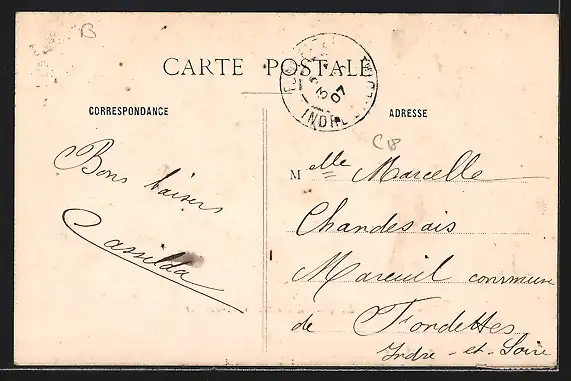 B
CARTE POSTALE
CORRESPONDANCE
ADRESSE
07
INDRE
C18
Bons baisers
Casilda
Melle Marcelle
Chandesais
Mareuil commune
de Fondettes
Indre-et-Loire